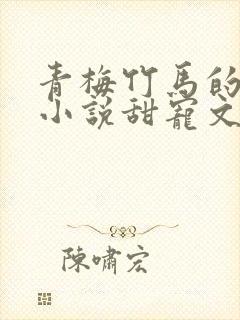 青梅竹馬的
小說甜寵文
陳嘯宏